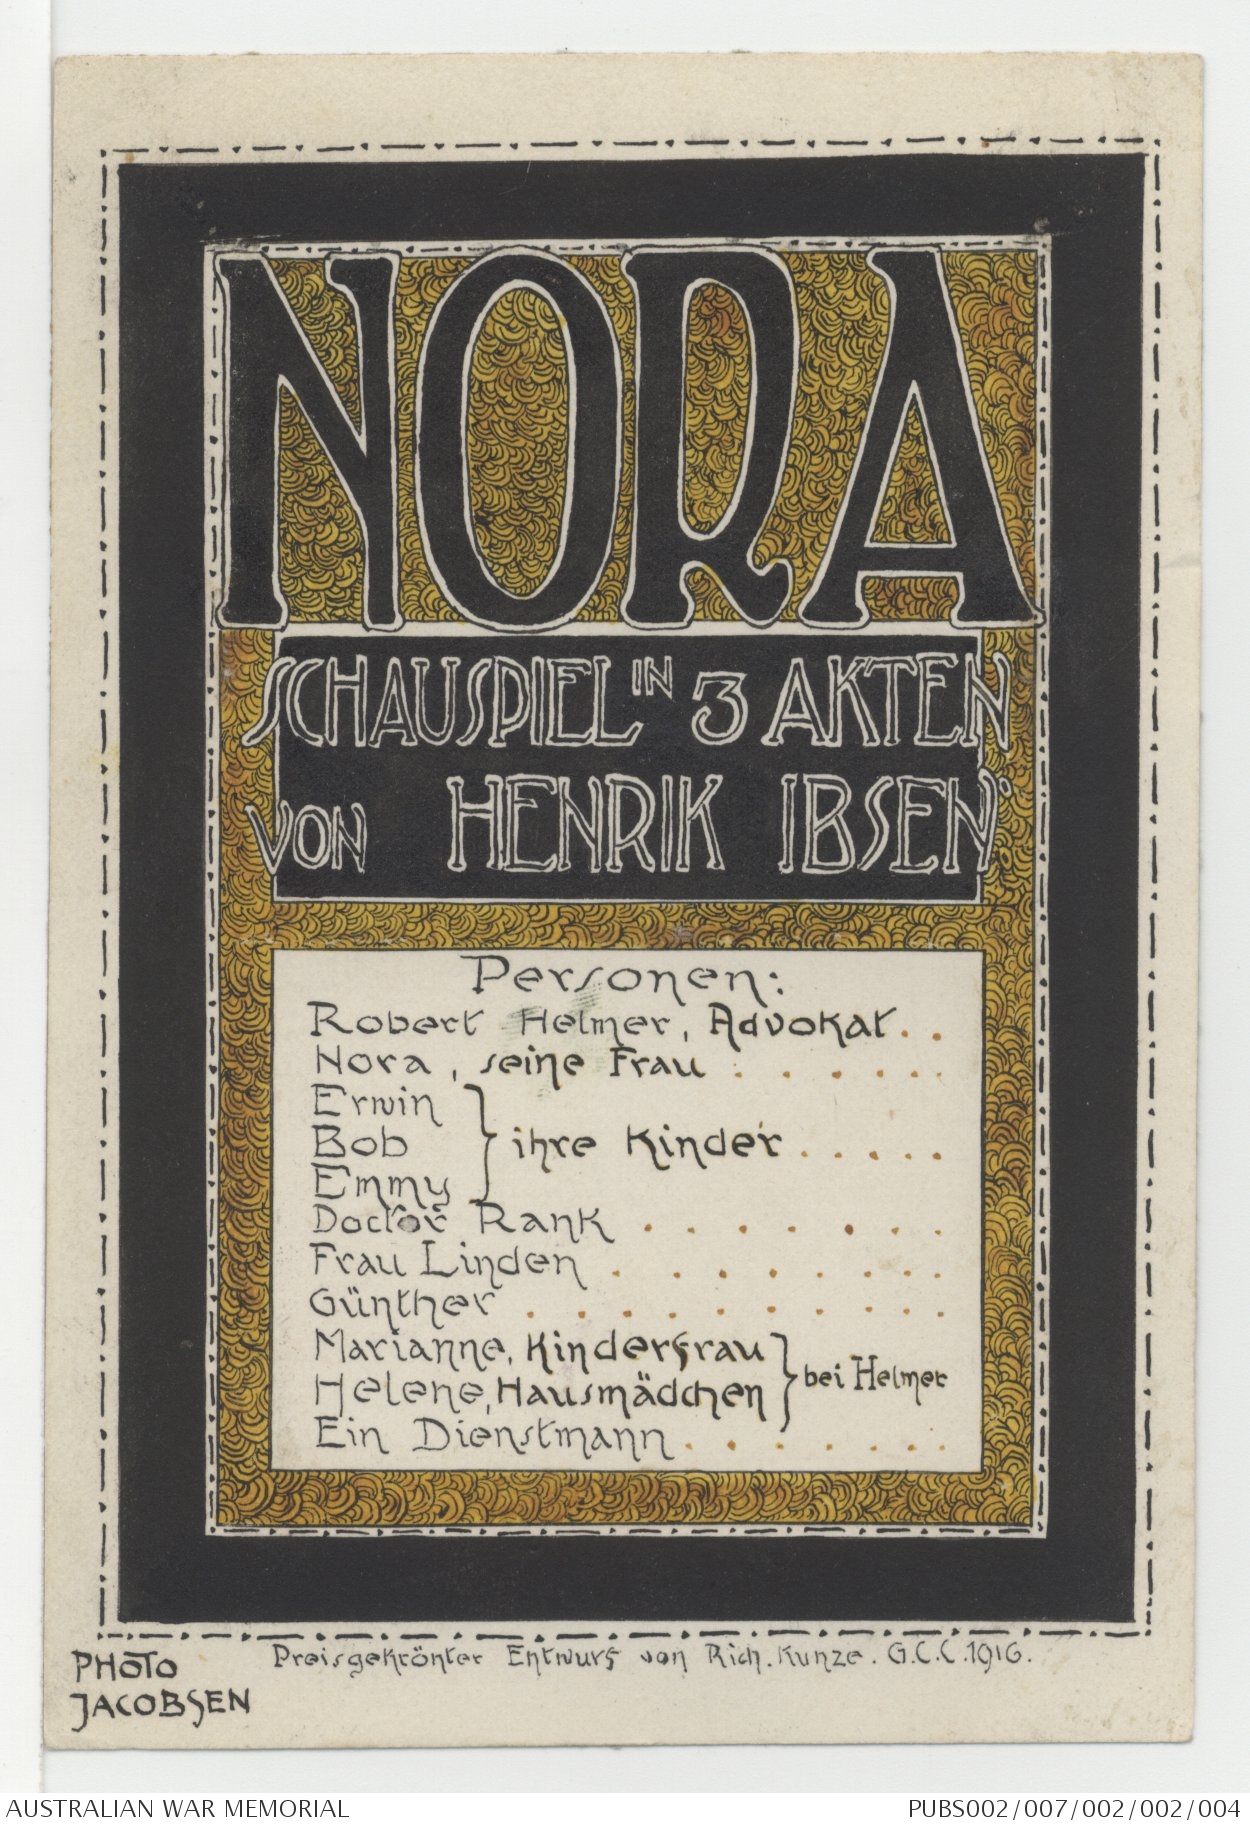 NORA
SCHAUSPIEL IN 3 AKTEN
VON HENRIK IBSEN.
Personen:
Robert Helmer, Advokat. .
Nora, seine Frau . . . . . .
Erwin
Bob } ihre Kinder . . . . .
Emmy
Doctor Rank . . . . . . .
Frau Linden . . . . . . . .
Günther . . . . . . . . . .
Marianne, Kinderfrau
Helene, Hausmädchen } bei Helmer
Ein Dienstmann . . . . . . .
Preisgekrönter Entwurf von Rich. Kunze. G.C.C.1916.
PHOTO
JACOBSEN
AUSTRALIAN WAR MEMORIAL
PUBS002/007/002/002/004